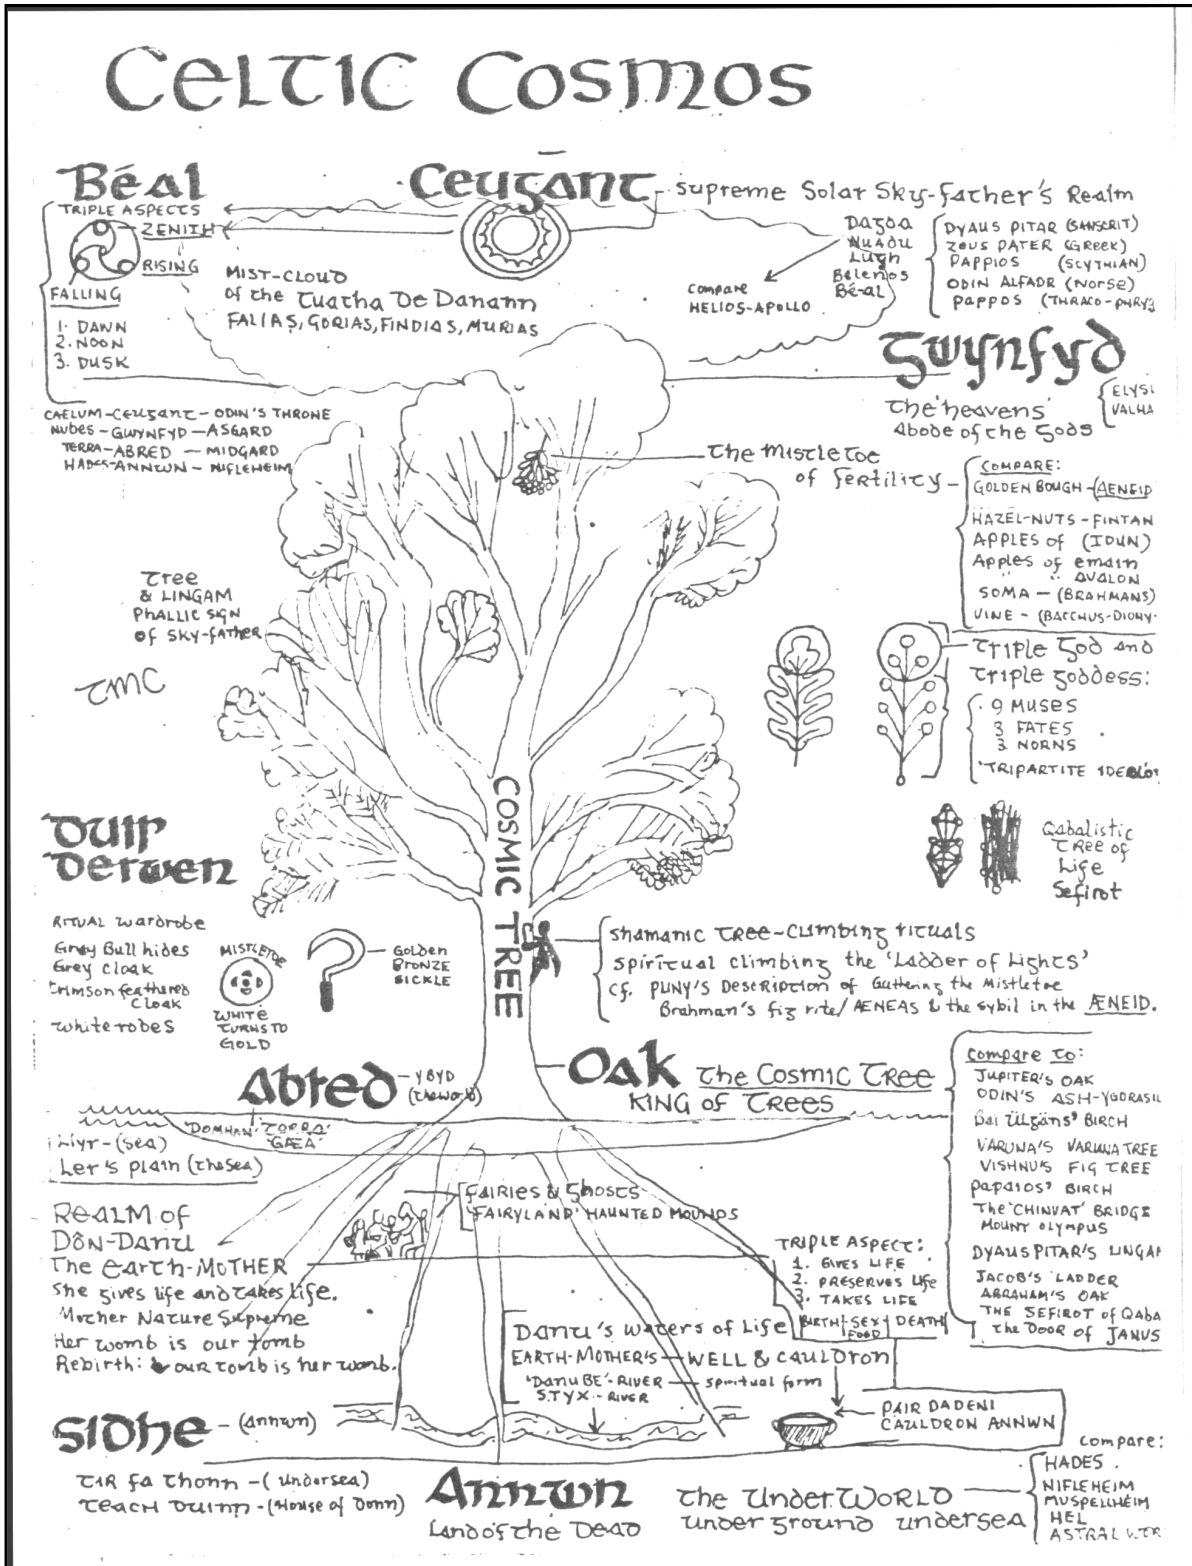 CELTIC COSMOS
Béal
TRIPLE ASPECTS
ZENITH
RISING
FALLING
1. DAWN
2. NOON
3. DUSK
Ceugant - Supreme Solar Sky-Father's Realm
MIST-CLOUD
of the Tuatha De Danann
FALIAS, GORIAS, FINDIAS, MURIAS
Dagda
Nuadu
Lugh
Belenos
Bé-al
compare
HELIOS-APOLLO
DYAUS PITAR (SANSCRIT)
ZEUS PATER (Greek)
PAPPIOS (SCYTHIAN)
ODIN ALFADR (Norse)
PAPPOS (THRACO-PHRYG
Gwynfyd
The 'heavens'
Abode of the Gods
ELYSI
VALHA
CAELUM-CEUGANT-ODIN'S THRONE
NUBES-GWYNFYD-ASGARD
TERRA-ABRED-MIDGARD
HADES-ANNWN-NIFLEHEIM
The Mistletoe
of Fertility
COMPARE:
GOLDEN BOUGH-AENEID
HAZEL-NUTS-FINTAN
APPLES of (IDUN)
Apples of emain
" " AVALON
SOMA-(BRAHMANS)
VINE-(BACCHUS-DIONY-
Tree
& LINGAM
PHALLIC SIGN
OF SKY-father
TMC
Triple God and
Triple Goddess:
9 MUSES
3 FATES
3 NORNS
'TRIPARTITE IDEOLO
COSMIC TREE
Duir
Derwen
Qabalistic
Tree of
Life
Sefirot
RITUAL wardrobe
Grey Bull hides
Grey cloak
Crimson feathered
cloak
white robes
MISTLETOE
WHITE
TURNS TO
GOLD
GOLDEN
BRONZE
SICKLE
Shamanic Tree-Climbing rituals
Spiritual climbing the 'Ladder of Lights'
cf. PLINY'S Description of Gathering the Mistletoe
Brahman's fig rite/ÆNEAS & the sybil in the ÆNEID.
Abred - YBYD
(the world)
Oak The Cosmic Tree
KING of TREES
'DOMHAN' 'TORRA'
'GAEA'
Llyr-(sea)
Ler's plain (the Sea)
Compare to:
JUPITER'S OAK
ODIN'S ASH-YGDRASIL
Bai Ülgäns' BIRCH
VARUNA'S VARUNA TREE
VISHNU'S FIG TREE
PAPAIOS' BIRCH
The 'CHINVAT' BRIDGE
MOUNT OLYMPUS
DYAUS PITAR'S LINGAM
JACOB'S LADDER
ABRAHAM'S OAK
THE SEFIROT of QABA
the DOOR of JANUS
FAIRIES & Ghosts
'FAIRYLAND' HAUNTED MOUNDS
REALM of
DÔN-DANU
The earth-MOTHER
She gives life and takes life.
Mother Nature Supreme
Her womb is our tomb
Rebirth: & our tomb is her womb.
TRIPLE ASPECT:
1. GIVES LIFE
2. PRESERVES Life
3. TAKES LIFE
BIRTH+SEX+DEATH
FOOD
Danu's waters of Life
EARTH-MOTHER'S-WELL & CAULDRON
'DanuBE'-RIVER-spiritual form
STYX-RIVER
PAIR DADENI
CAULDRON ANNWN
SIDHE - (Annwn)
TIR fa Thonn-(undersea)
TEACH DUINN-(House of Donn)
Annwn
Land of the Dead
The UnderWORLD
underground undersea
compare:
HADES
NIFLEHEIM
MUSPELLHEIM
HEL
ASTRAL